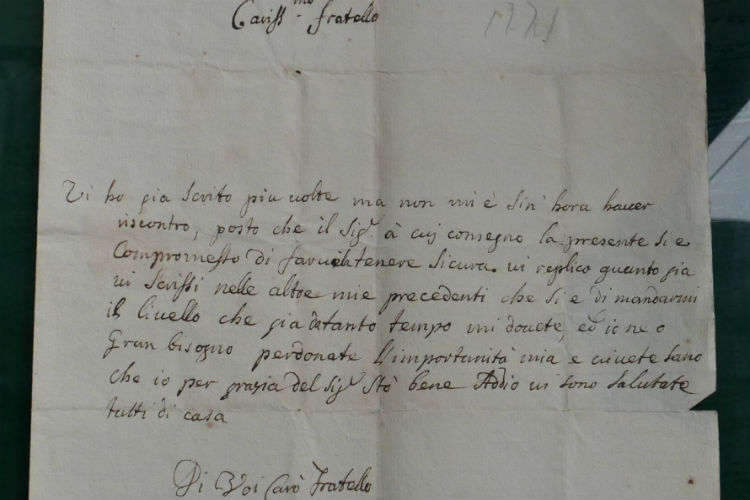 Cariss.mo fratello 1771
Vi ho gia scrito piu uolte ma non mi è sin' hora hauer
riscontro, posto che il Sig.r à cuj consegno la presente si e
Compromesso di faruela tenere sicura. ui replico quanto gia
ui scrissi nelle altre mie precedenti che si e di mandarmi
il liuello che gia da tanto tempo mi douete, ed io ne o
Gran bisogno perdonate l'importunità mia e uiuete sano
che io per grazia del Sig.r Stò bene Addio ui sono salutate
tutti di casa
Di Voi Caro Fratello